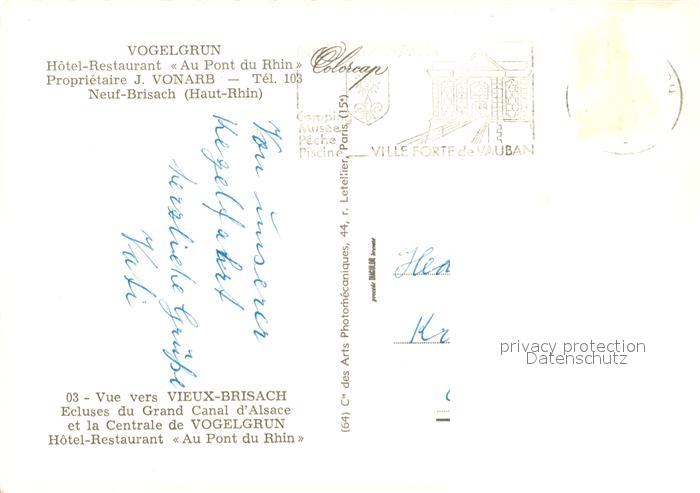 VOGELGRUN
Hôtel-Restaurant « Au Pont du Rhin »
Propriétaire J. VONARB — Tél. 103
Neuf-Brisach (Haut-Rhin)
Colorcap
Camping
Musée
Pêche
Piscine
VILLE FORTE de VAUBAN
Von unserer
Kegelfahrt
herzliche Grüße
Vati
(64) Cie des Arts Photomécaniques, 44, r. Letellier, Paris (15e)
Hea
Kr
privacy protection
Datenschutz
03 - Vue vers VIEUX-BRISACH
Ecluses du Grand Canal d'Alsace
et la Centrale de VOGELGRUN
Hôtel-Restaurant « Au Pont du Rhin »